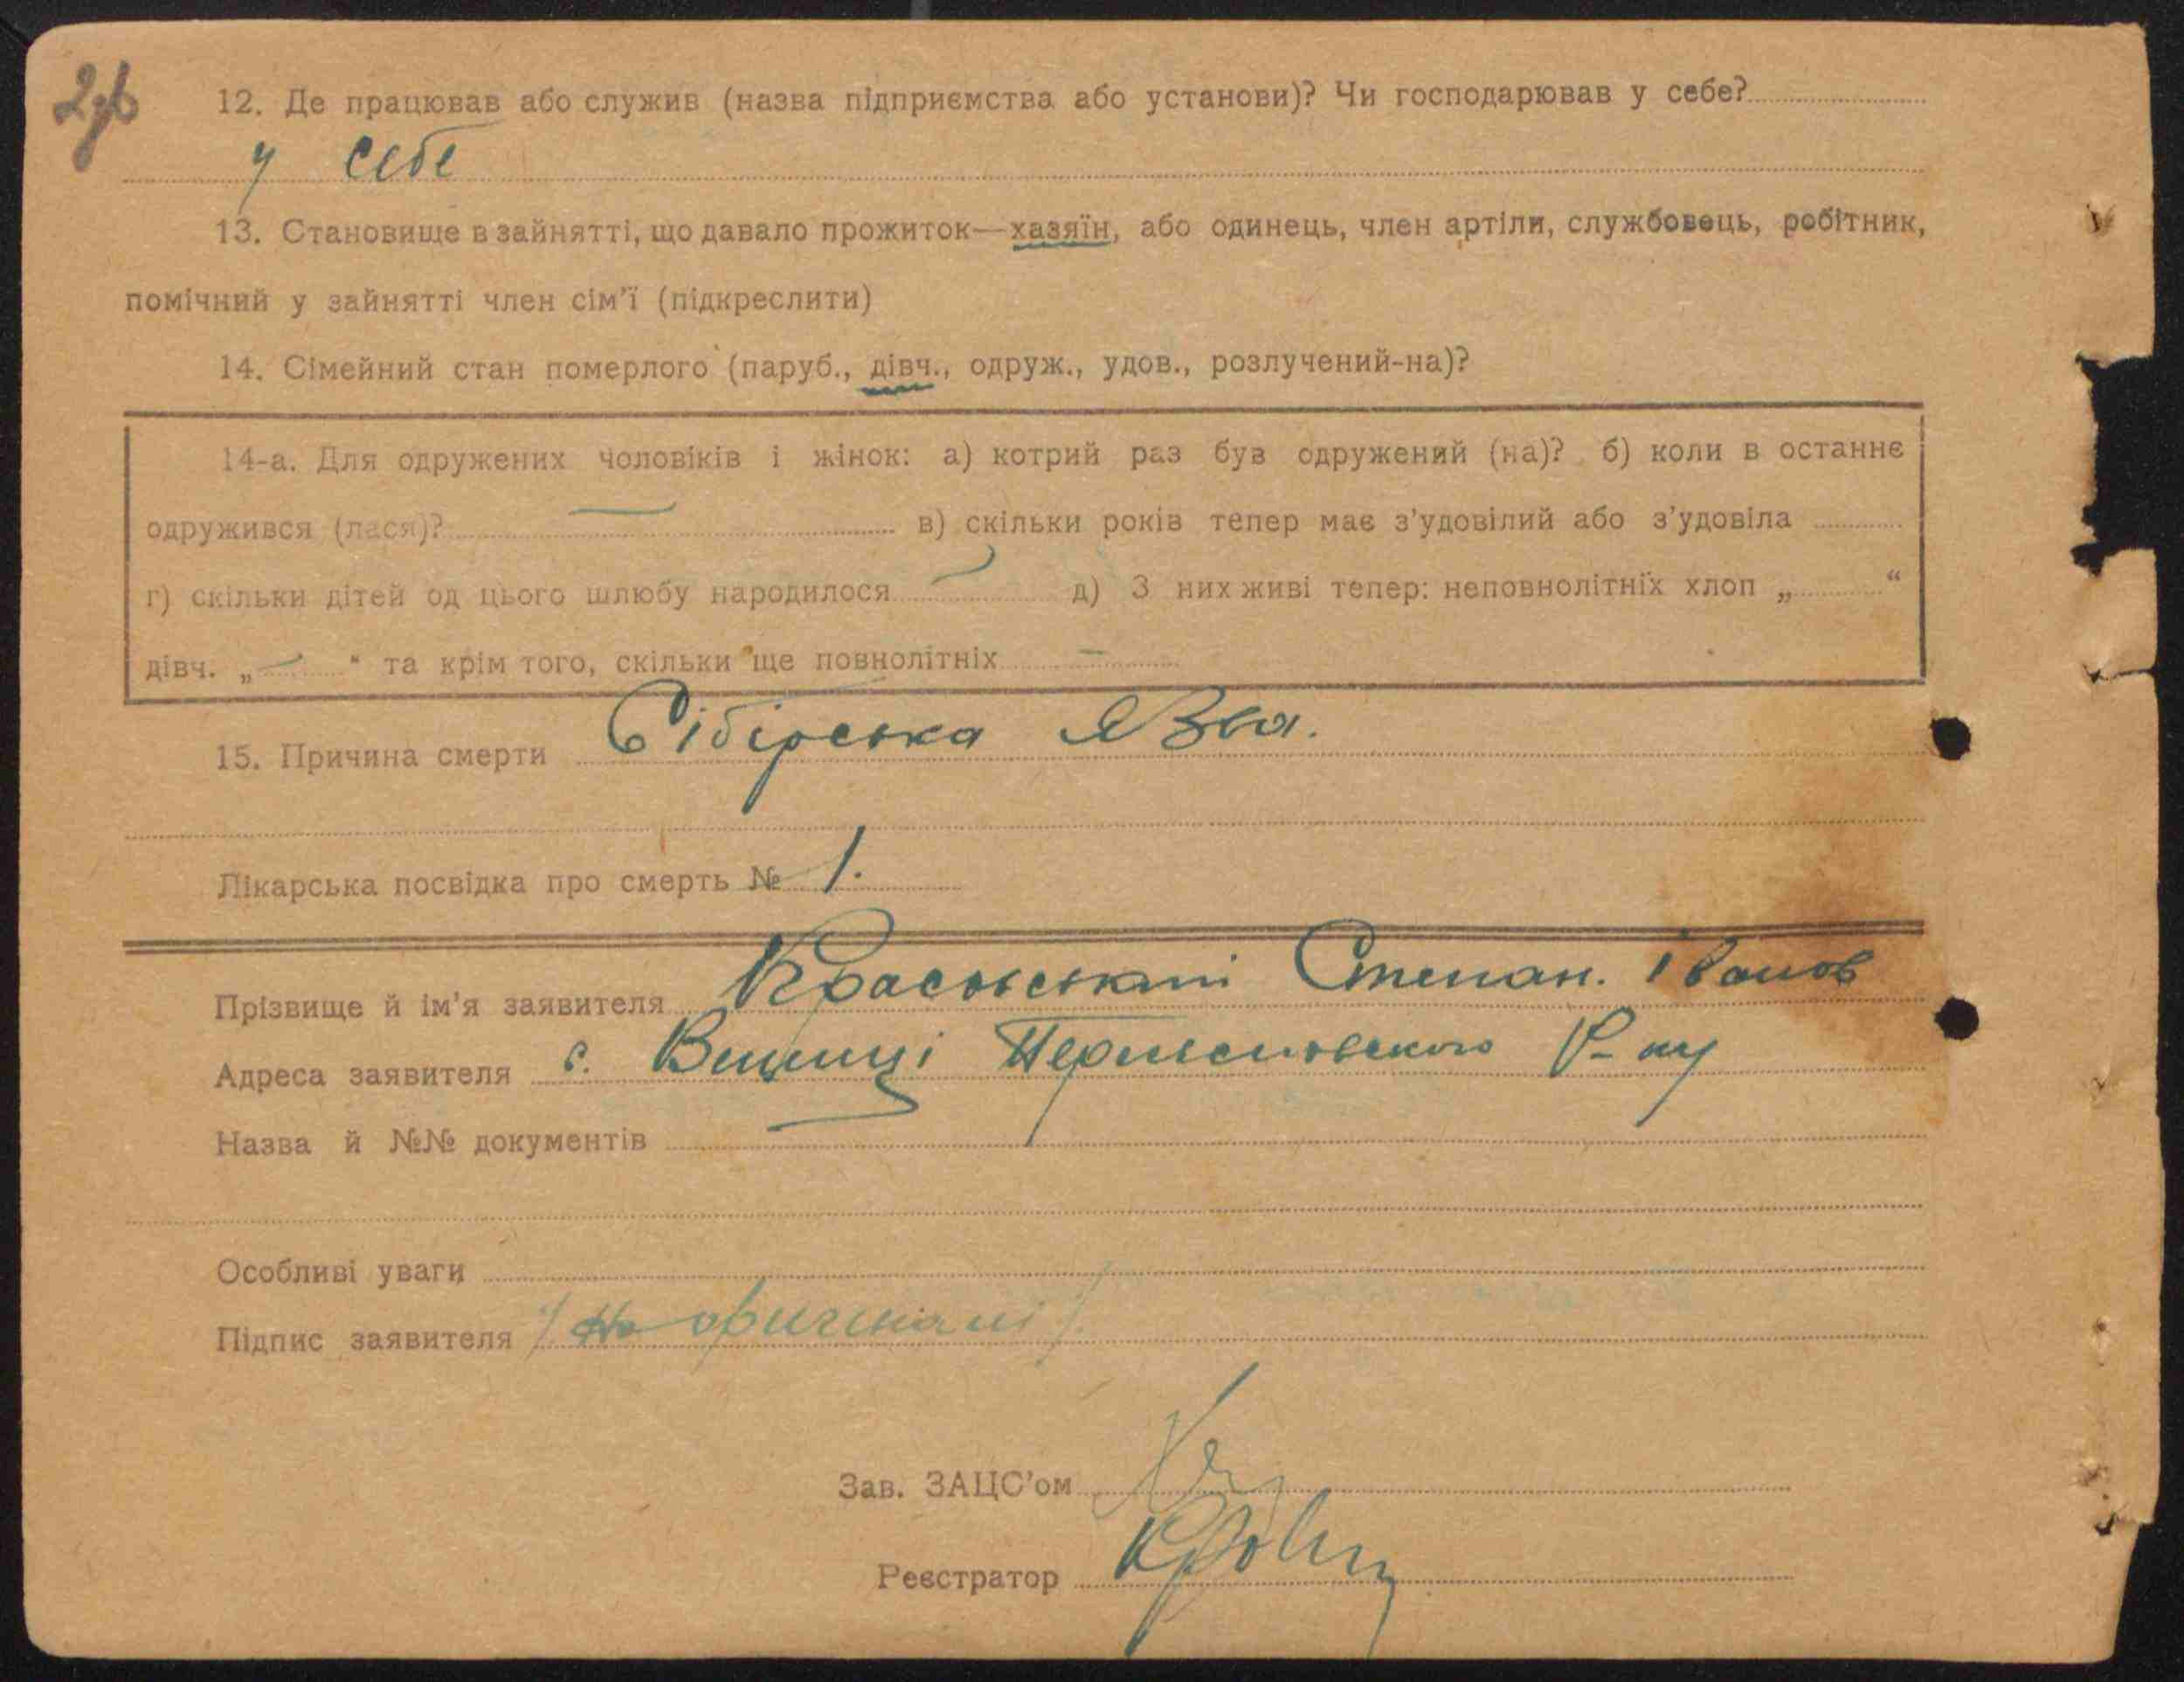 2зв
12. Де працював або служив (назва підприємства або установи)? Чи господарював у себе?
у себе
13. Становище в зайнятті, що давало прожиток—хазяїн, або одинець, член артіли, службовець, робітник,
помічний у зайнятті член сім'ї (підкреслити)
14. Сімейний стан померлого (паруб., дівч., одруж., удов., розлучений-на)?
14-а. Для одружених чоловіків і жінок: а) котрий раз був одружений (на)? б) коли в останнє
одружився (лася)? — в) скільки років тепер має з'удовілий або з'удовіла
г) скільки дітей од цього шлюбу народилося — д) З них живі тепер: неповнолітніх хлоп „ “
дівч. „ — “ та крім того, скільки ще повнолітніх —
15. Причина смерти Сібірська язва.
Лікарська посвідка про смерть № 1.
Прізвище й ім'я заявителя Красовський Степан. Іванов
Адреса заявителя с. Р-ну
Назва й №№ документів
Особливі уваги
Підпис заявителя / на оригіналі /
Зав. ЗАЦС'ом
Реєстратор